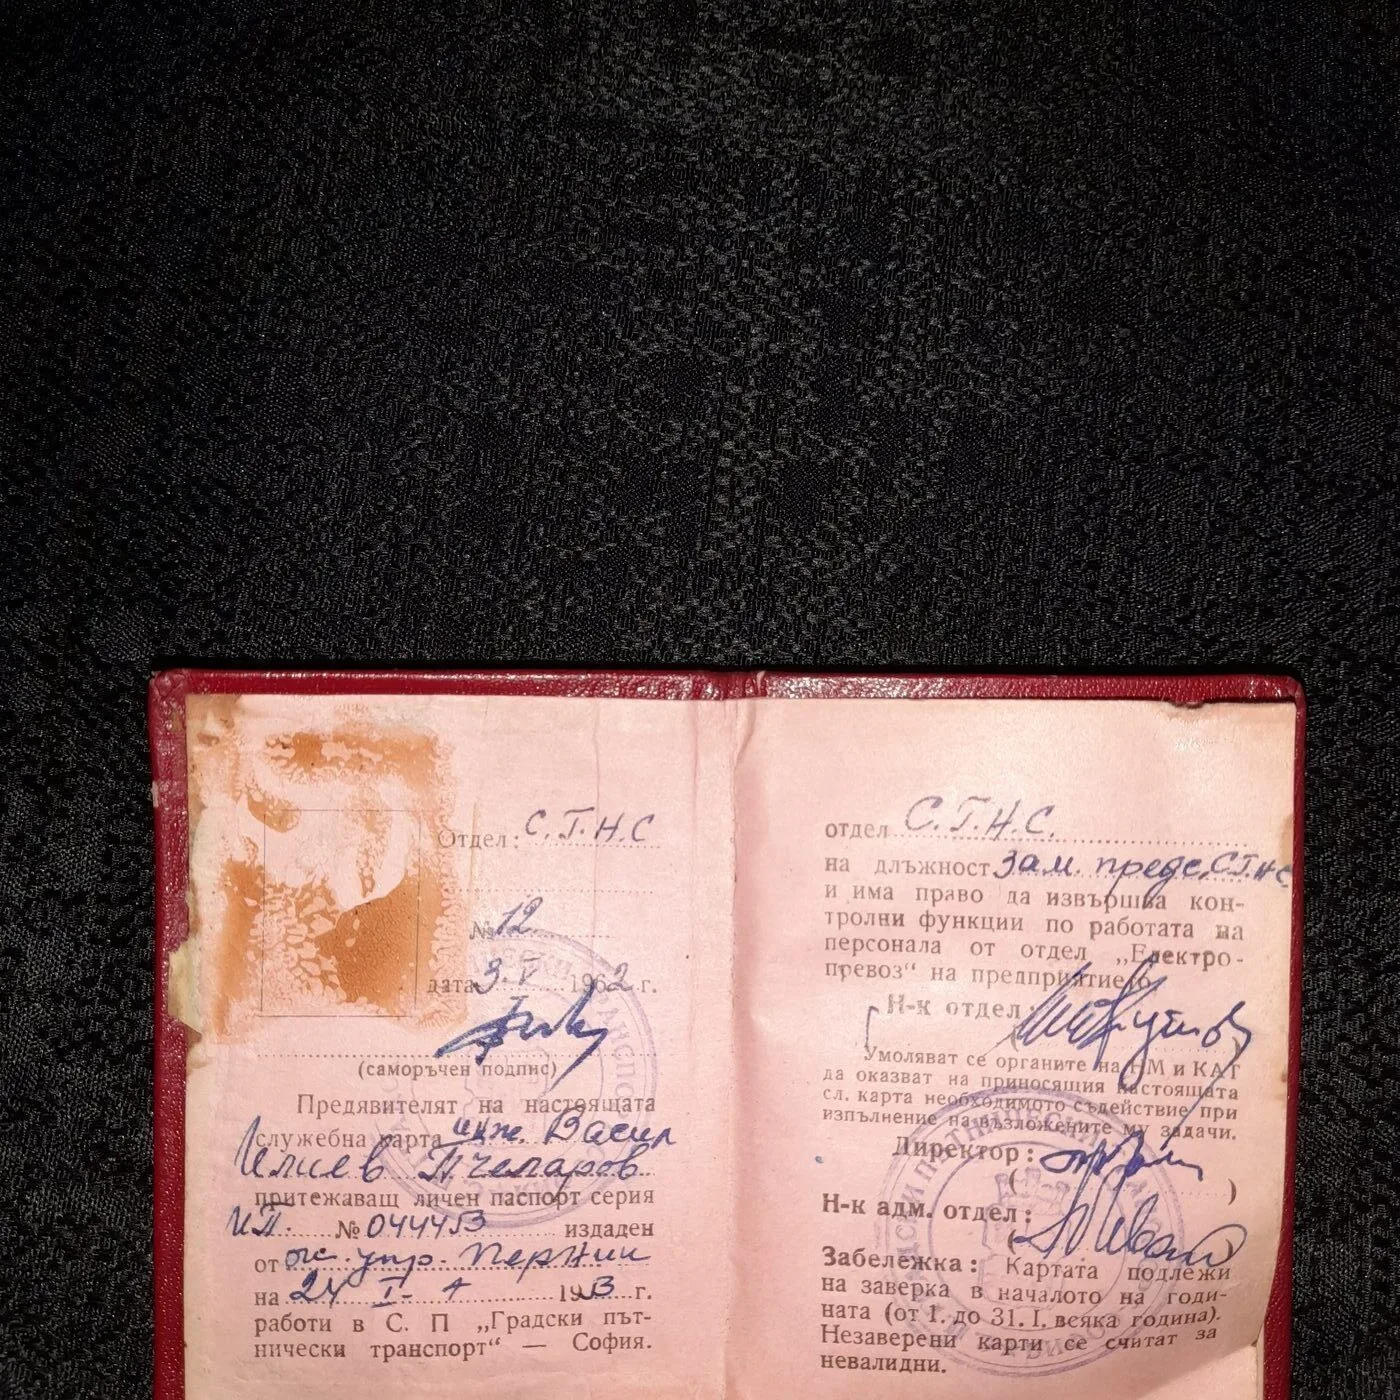 Отдел: С.Г.Н.С
№ 12
дата 3.V 1962 г.
(саморъчен подпис)
Предявителят на настоящата
служебна карта инж. Васил
Илиев Пчеларов
притежаващ личен паспорт серия
№ 044453 издаден
от ок. упр. Перник
на 24 I - 1953 г.
работи в С. П „Градски път-
нически транспорт“ — София.
отдел С.Г.Н.С.
на длъжност зам. предс. СГНС
и има право да извършва кон-
тролни функции по работата на
персонала от отдел „Електро-
превоз“ на предприятието
Н-к отдел:
Умоляват се органите на НМ и КАТ
да оказват на приносящия настоящата
сл. карта необходимото съдействие при
изпълнение на възложените му задачи.
Директор:
( )
Н-к адм. отдел:
Забележка: Картата подлежи
на заверка в началото на годи-
ната (от 1. до 31. I. всяка година).
Незаверени карти се считат за
невалидни.